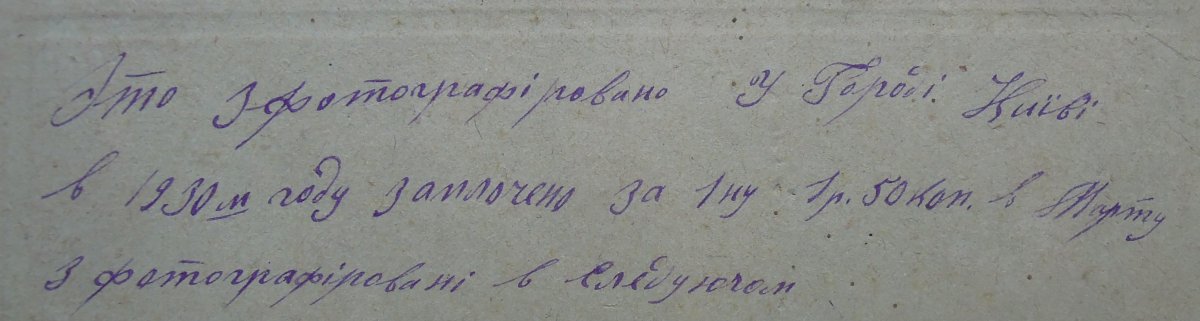 Это зфотографіровано У Городі Київі
в 1930м году заплочено за 1ну 1р. 50 коп. в Марту
зфотографіровані в Следуючом